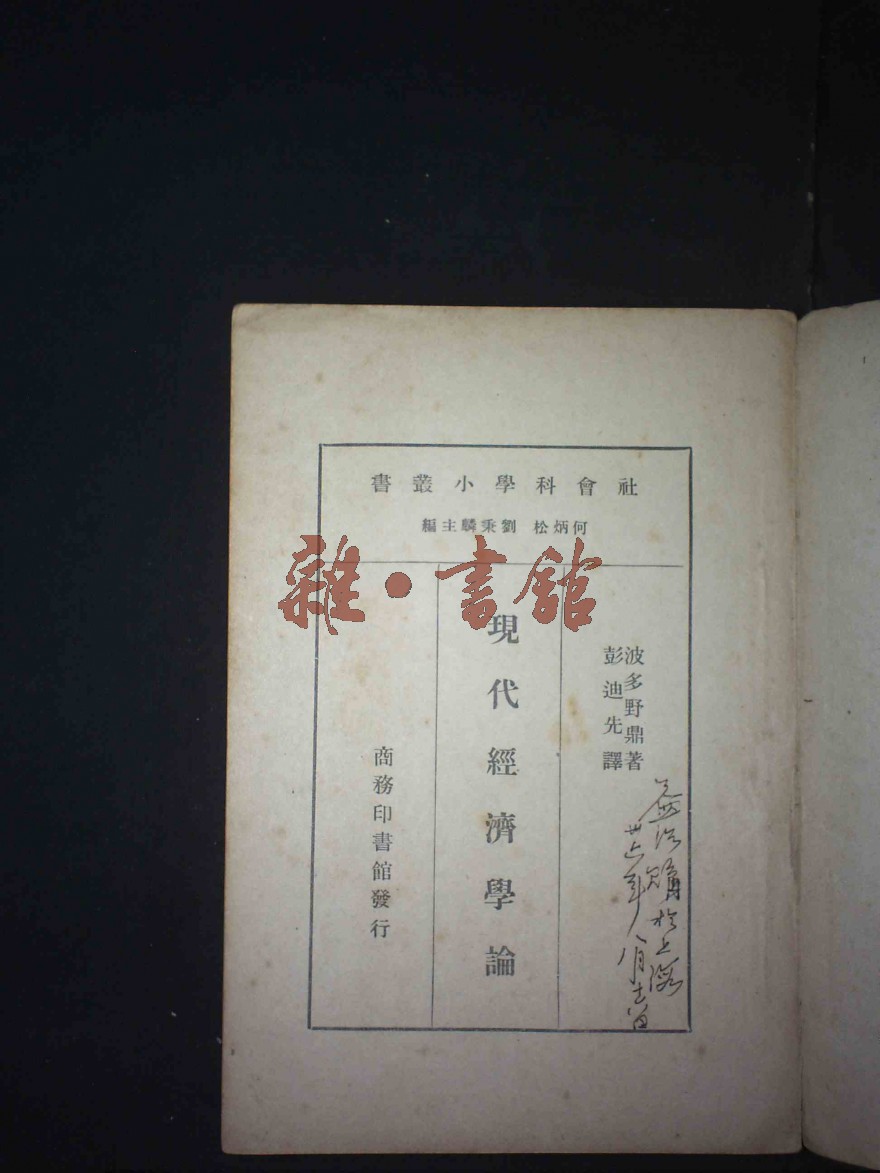 社會科學小叢書
何炳松 劉秉麟主編
波多野鼎著
彭迪先譯
現代經濟學論
商務印書館發行
雜·書館
於上海
年八月